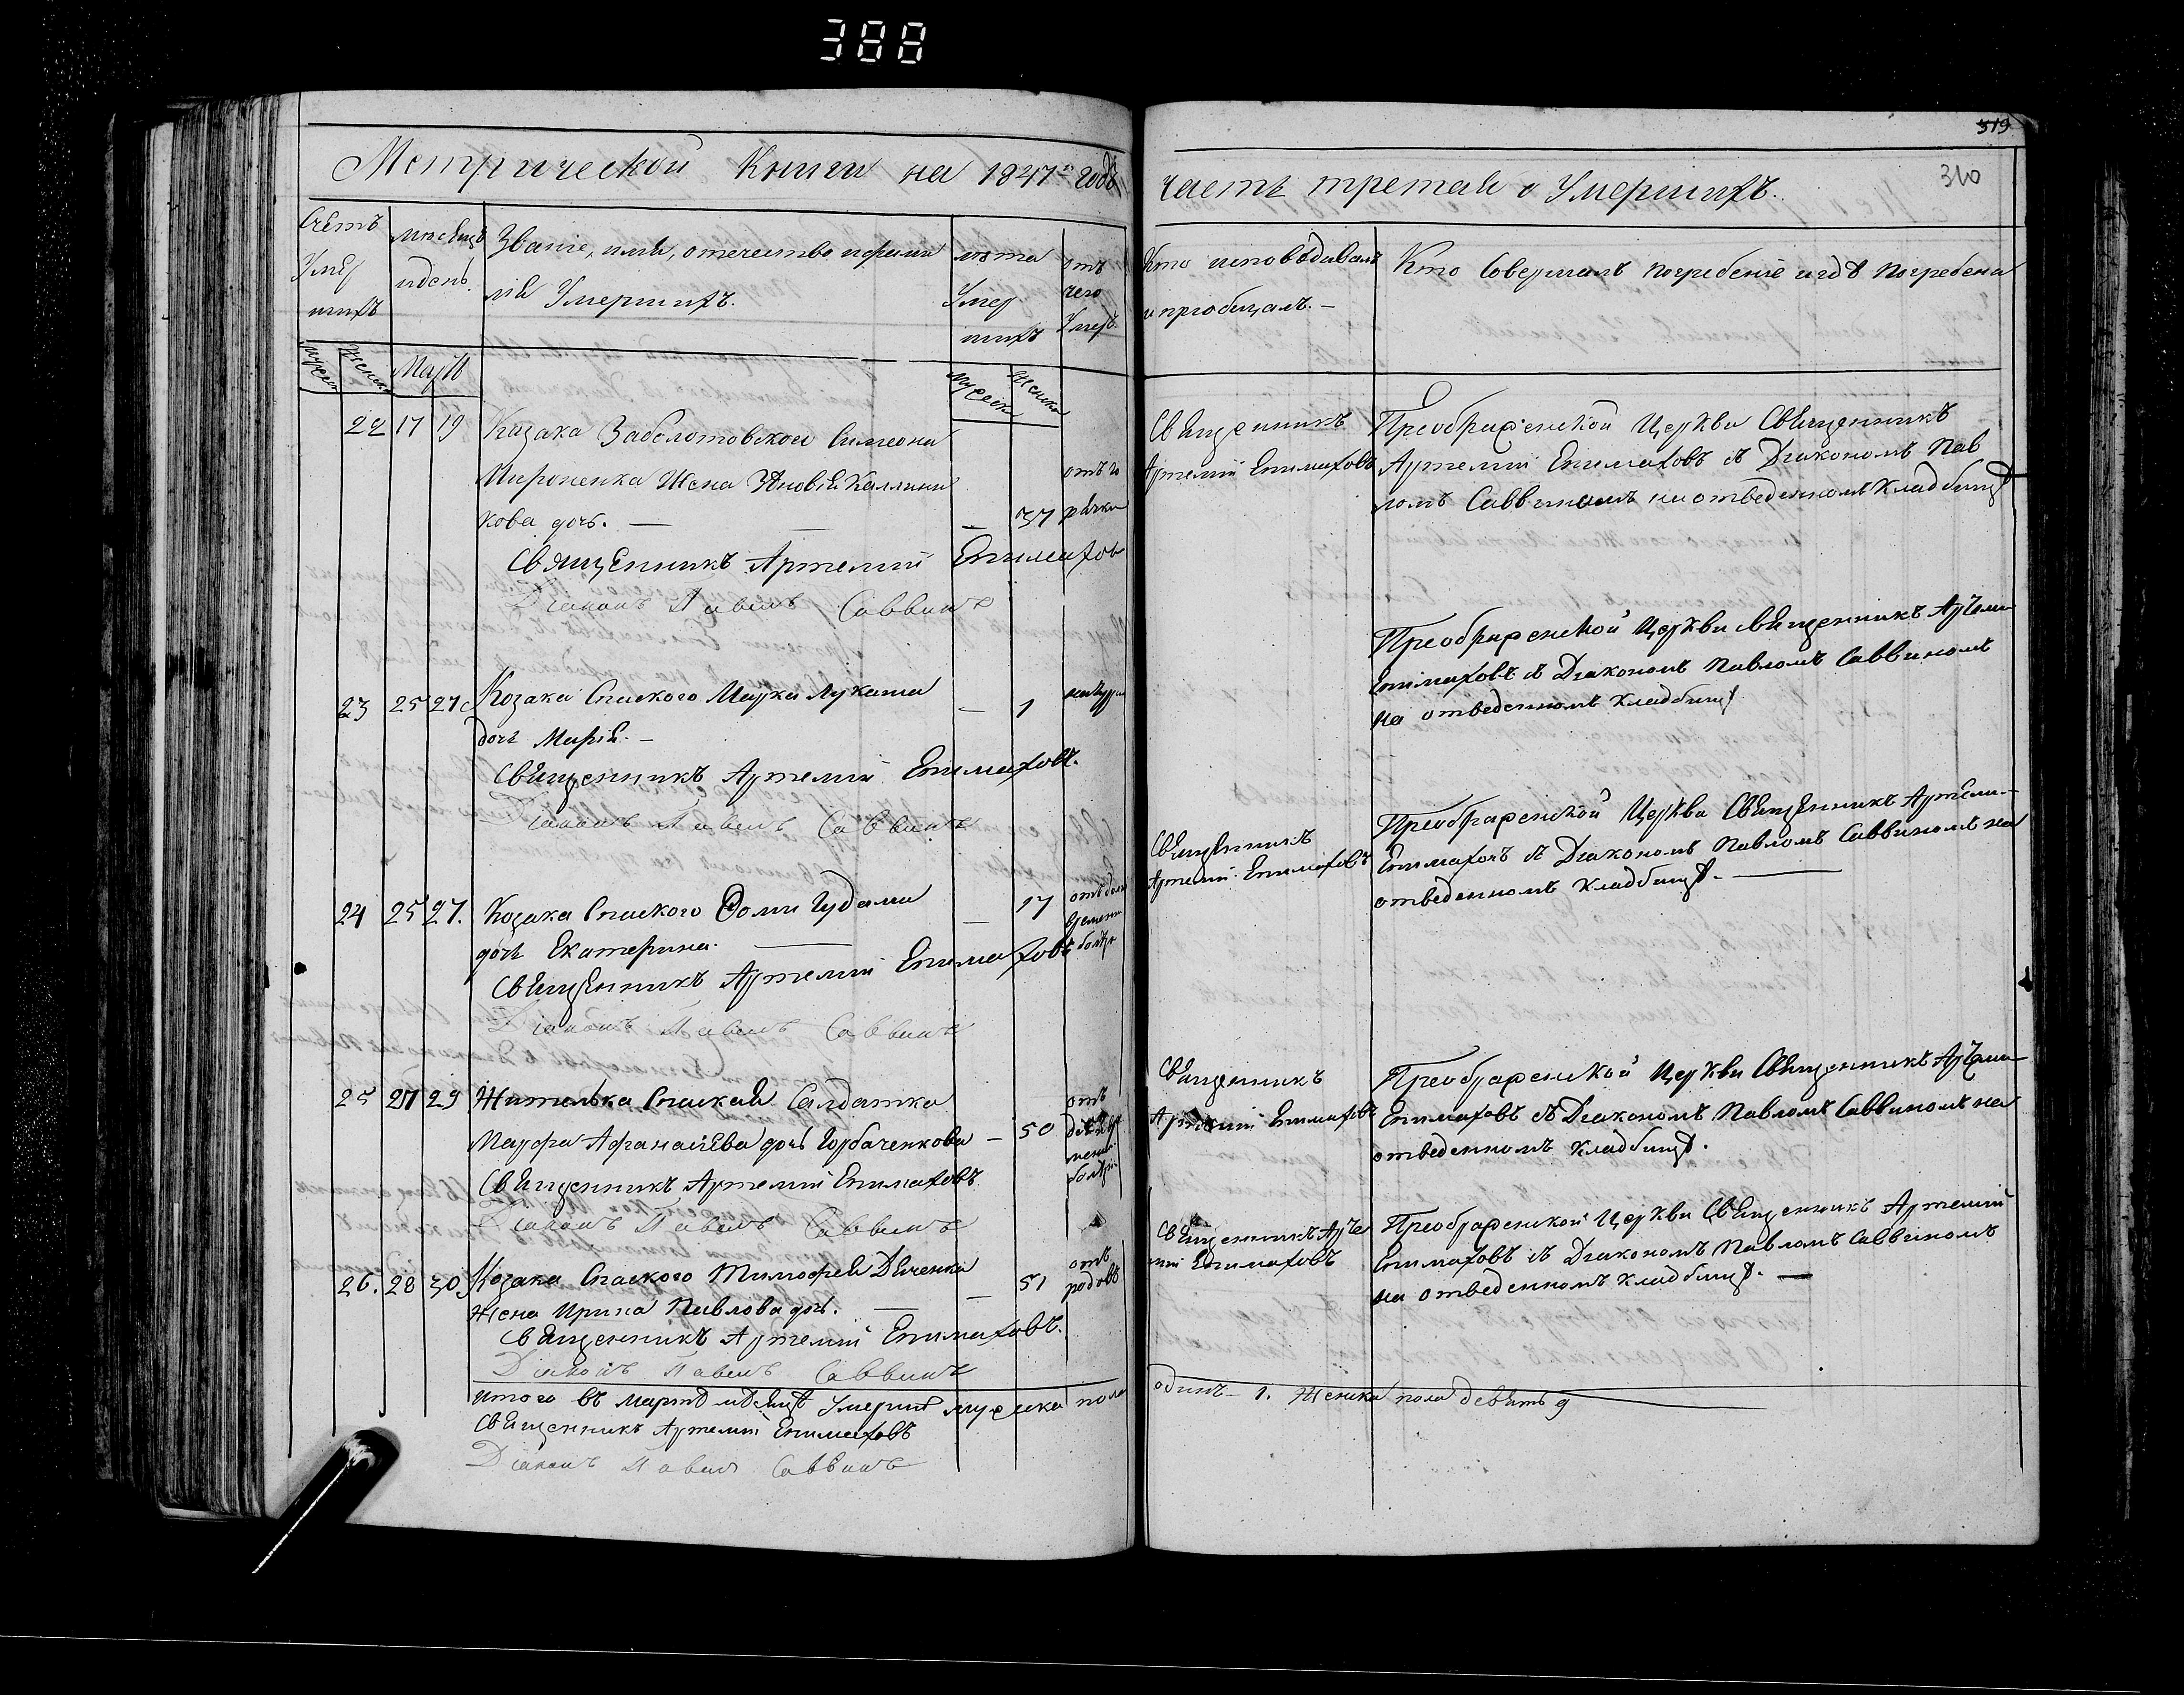 388
319
310
Метрической Книги на 1847й годъ
часть третая о Умершихъ.
Счетъ Умер шихъ
мѣсяцъ и день.
Званіе, имя, отечество и фами
лія Умершихъ.
лѣта Умер шихъ
отъ чего Умеръ.
Кто исповѣдивалъ
и пріобщалъ.—
Кто Совершалъ погребеніе и гдѣ погребены
мужеск женска
Мартъ
мужеска женска
22 17 19 Казака Заболотовского Симеона
Мироненка Жена Зѣновія Каллини
кова дочь. — — 37 отъ го рячки
Священникъ Артемій Епимахов
Діаконъ Павелъ Саввинъ
Священникъ
Артемій Епимаховъ
Преображенской Церкви Священникъ
Артемій Епимаховъ съ Діакономъ Пав
ломъ Саввиномъ на отведенномъ Кладбищѣ
23 25 27 Козака Спаского Марка Лукаша — 1
дочь Марія.—
Священникъ Артемій Епимаховъ.
Діаконъ Павелъ Саввинъ
Преображенской Церкви священникъ Артеми
Епимаховъ съ Діакономъ Павломъ Саввиномъ
на отведенномъ кладбищѣ
24 25 27. Козака Спаского Фомы Гудыми — 17
дочь Екатерина. —
Священникъ Артемій Епимаховъ
Діаконъ Павелъ Саввинъ
Священникъ
Артемій Епимаховъ
Преображенской Церкви Священникъ Артеми—
Епимаховъ съ Діакономъ Павломъ Саввиномъ на
отведенномъ кладбищѣ.—
25 27 29 Жителька Спаская Салдатка
Марфа Афанасіева дочь Горбаченкова — 50 отъ
Священникъ Артемій Епимаховъ
Діаконъ Павелъ Саввинъ
Священникъ
Артемій Епимаховъ
Преображенской Церкви Священникъ Артеми
Епимаховъ съ Діакономъ Павломъ Саввиномъ на
отведенномъ кладбищѣ.
26. 28 30. Козака Спаского Тимофея Дяченка — 51 отъ родовъ
Жена Ирина Павлова дочь. —
Священникъ Артемій Епимаховъ.
Діаконъ Павелъ Саввинъ
Священникъ Арте
мій Епимаховъ
Преображенской Церкви Священникъ Артемій
Епимаховъ съ Діакономъ Павломъ Саввиномъ
на отведенномъ кладбищѣ.—
Итого въ Мартѣ мѣсяцѣ Умерш мужеска пола
одинъ— 1. Женска пола девять 9
Священникъ Артемій Епимаховъ
Діаконъ Павелъ Саввинъ